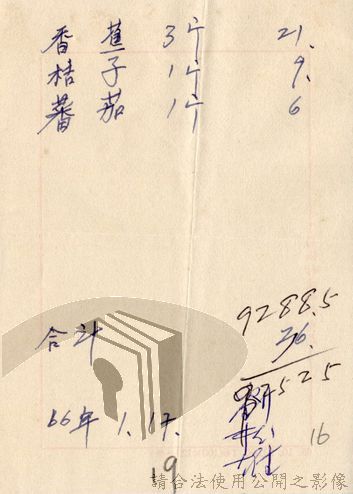 香蕉 3斤 21.
桔子 1斤 9.
蕃茄 1斤 6
9288.5
36.
合計
66年 1. 17.
16
19
請合法使用公開之影像